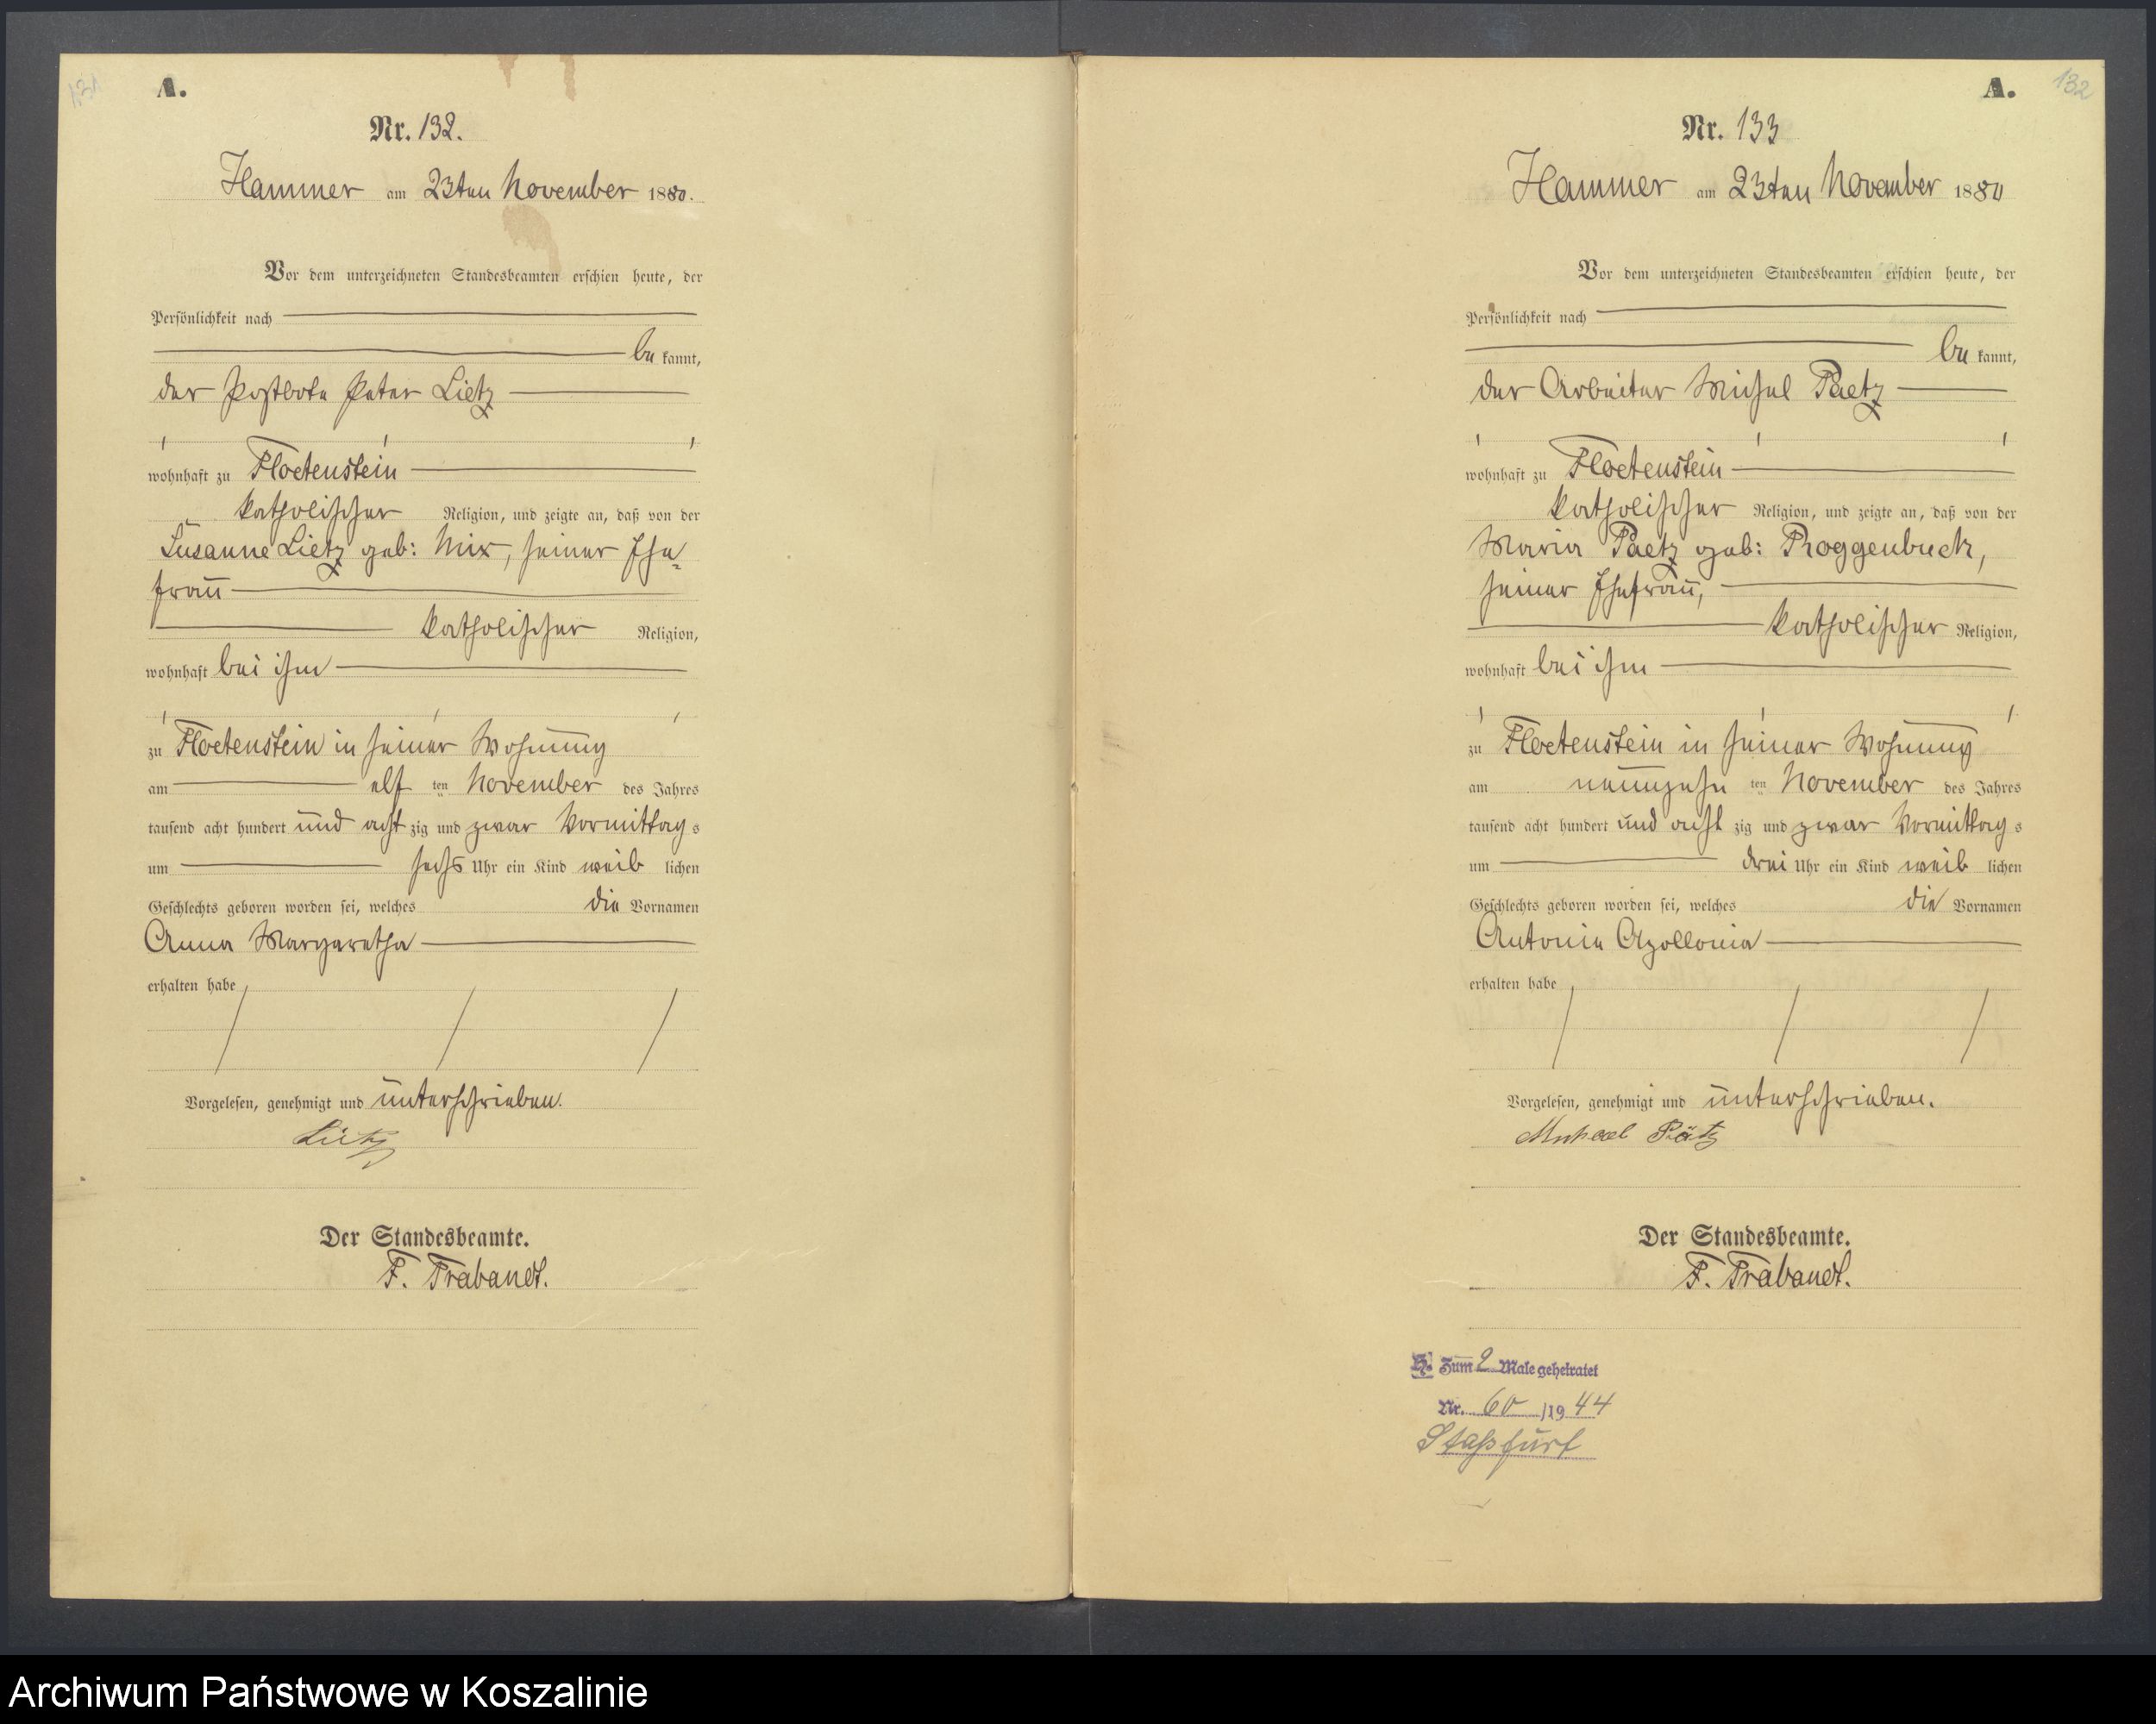 131
A.
Nr. 132.
Hammer am 23ten November 1880.
Vor dem unterzeichneten Standesbeamten erschien heute, der
Persönlichkeit nach
be kannt,
der Postbote Peter Lietz
wohnhaft zu Floetenstein
katholischer Religion, und zeigte an, daß von der
Susanne Lietz geb: Mix, seiner Ehe-
frau
katholischer Religion,
wohnhaft bei ihm
zu Floetenstein in seiner Wohnung
am elf ten November des Jahres
tausend acht hundert und acht zig und zwar Vormittag s
um sechs Uhr ein Kind weib lichen
Geschlechts geboren worden sei, welches die Vornamen
Anna Margaretha
erhalten habe
Vorgelesen, genehmigt und unterschrieben.
Lietz
Der Standesbeamte.
F. Trabandt.
132
A.
Nr. 133
Hammer am 23ten November 1880
Vor dem unterzeichneten Standesbeamten erschien heute, der
Persönlichkeit nach
be kannt,
der Arbeiter Michel Paetz
wohnhaft zu Floetenstein
katholischer Religion, und zeigte an, daß von der
Maria Paetz geb: Roggenbuck,
seiner Ehefrau,
katholischer Religion,
wohnhaft bei ihm
zu Floetenstein in seiner Wohnung
am neunzehn ten November des Jahres
tausend acht hundert und acht zig und zwar Vormittag s
um drei Uhr ein Kind weib lichen
Geschlechts geboren worden sei, welches die Vornamen
Antonie Apollonia
erhalten habe
Vorgelesen, genehmigt und unterschrieben.
Michael Pätz
Der Standesbeamte.
F. Trabandt.
Zum 2 Male geheiratet
Nr. 60 /19 44
Staßfurt
Archiwum Państwowe w Koszalinie